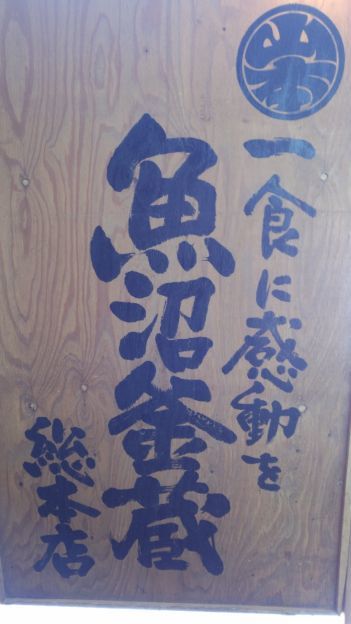 一食に感動を
魚沼釜蔵
総本店